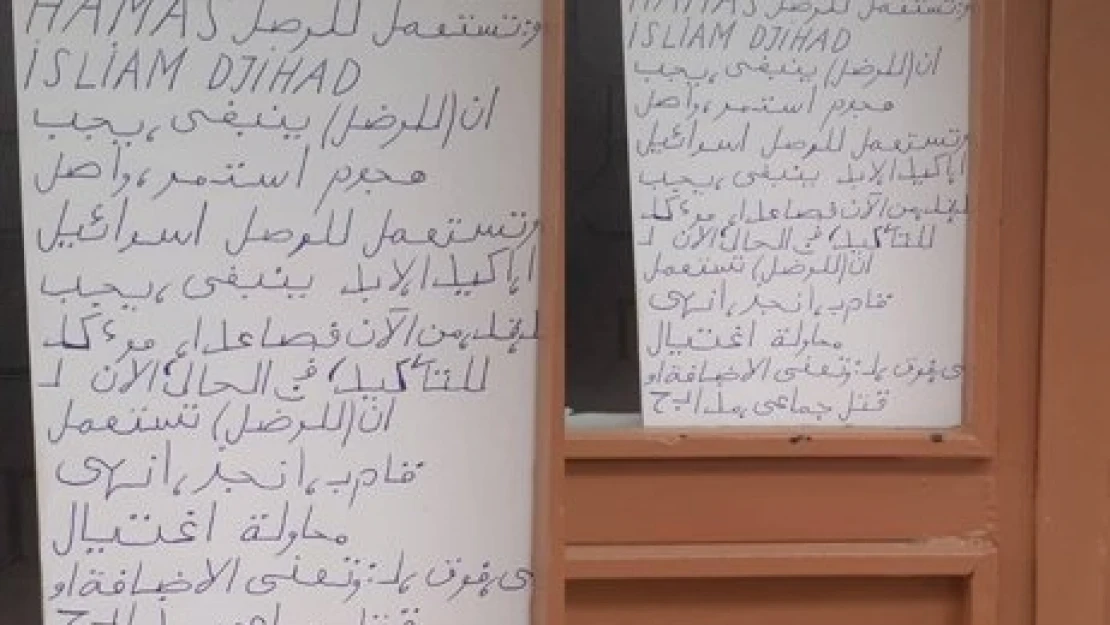 HAMAS و:تستعمل للرصل
İSLİAM DJİHAD
ان (للرضل) ينبغى ،يجب
هجوم استمر ،واصل
وتستعمل للوصل اسرائيل
ينبغى ،يجب
من الآن فصاعدا, موءكد
للتأكيد، في الحال، الآن لـ
ان (للرضل) تستعمل
قام ب ،انجز ،انهى
محاولة اغتيال
ى ,فوق ,لـ :وتعنى الاضافة او
HAMAS و:تستعمل للرصل
İSLİAM DJİHAD
ان (للرضل) ينبغى ،يجب
هجوم استمر ،واصل
وتستعمل للوصل اسرائيل
ينبغى ،يجب
من الآن فصاعدا, موءكد
للتأكيد، في الحال، الآن لـ
ان (للرضل) تستعمل
قام ب ،انجز ،انهى
محاولة اغتيال
ى ,فوق ,لـ :وتعنى الاضافة او
قتل جماعى